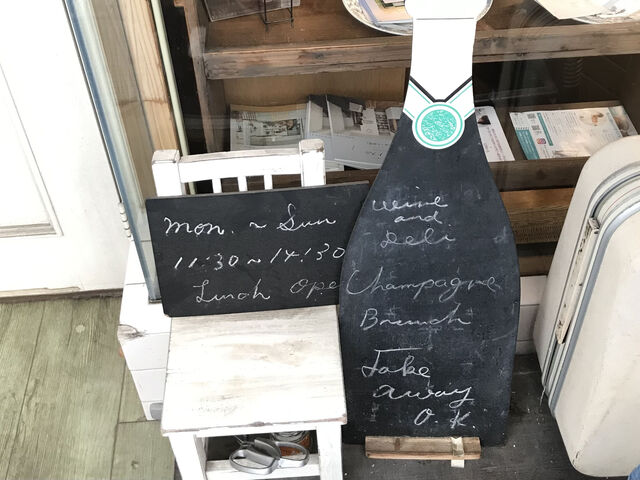 mon. ~ Sun
11:30 ~ 14:30
Lunch Ope
wine
and
Deli
Champagne
Brunch
Take
away
O.K.